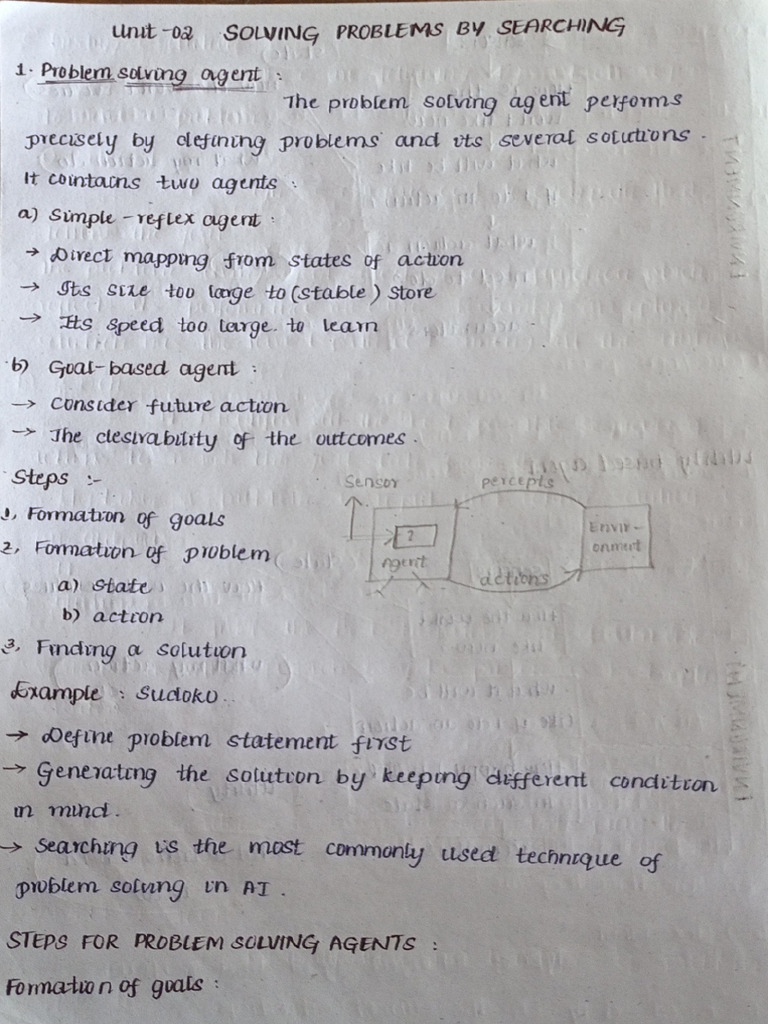 Unit-02 SOLVING PROBLEMS BY SEARCHING
1. Problem solving agent :
The problem solving agent performs
precisely by defining problems and its several solutions.
It contains two agents :
a) Simple-reflex agent :
→ Direct mapping from states of action
→ Its size too large to (stable) store
→ Its speed too large to learn
b) Goal-based agent :
→ Consider future action
→ The desirability of the outcomes.
Steps :-
1, Formation of goals
2, Formation of problem
a) state
b) action
3, Finding a solution
Sensor
percepts
?
Agent
Envir-
onment
actions
Example : SUDOKU.
→ Define problem statement first
→ Generating the solution by keeping different condition
in mind.
→ Searching is the most commonly used technique of
problem solving in AI.
STEPS FOR PROBLEM SOLVING AGENTS :
Formation of goals :